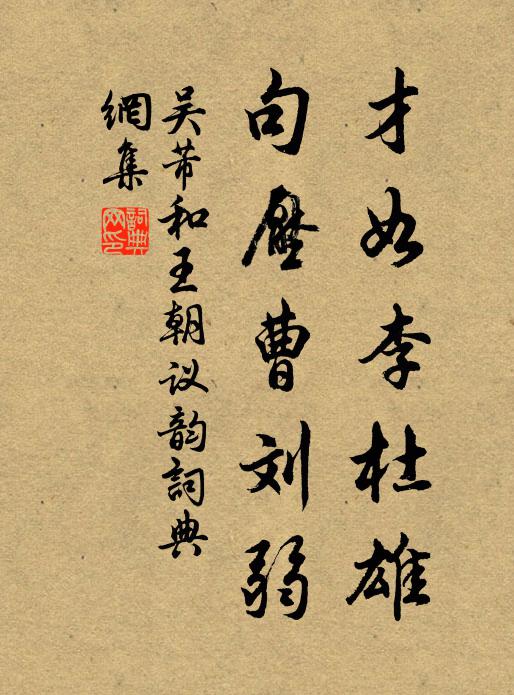 才如李杜雄
句壓曹刘弱
吴芾和王朝议韵詞典
網集
詞典
网印